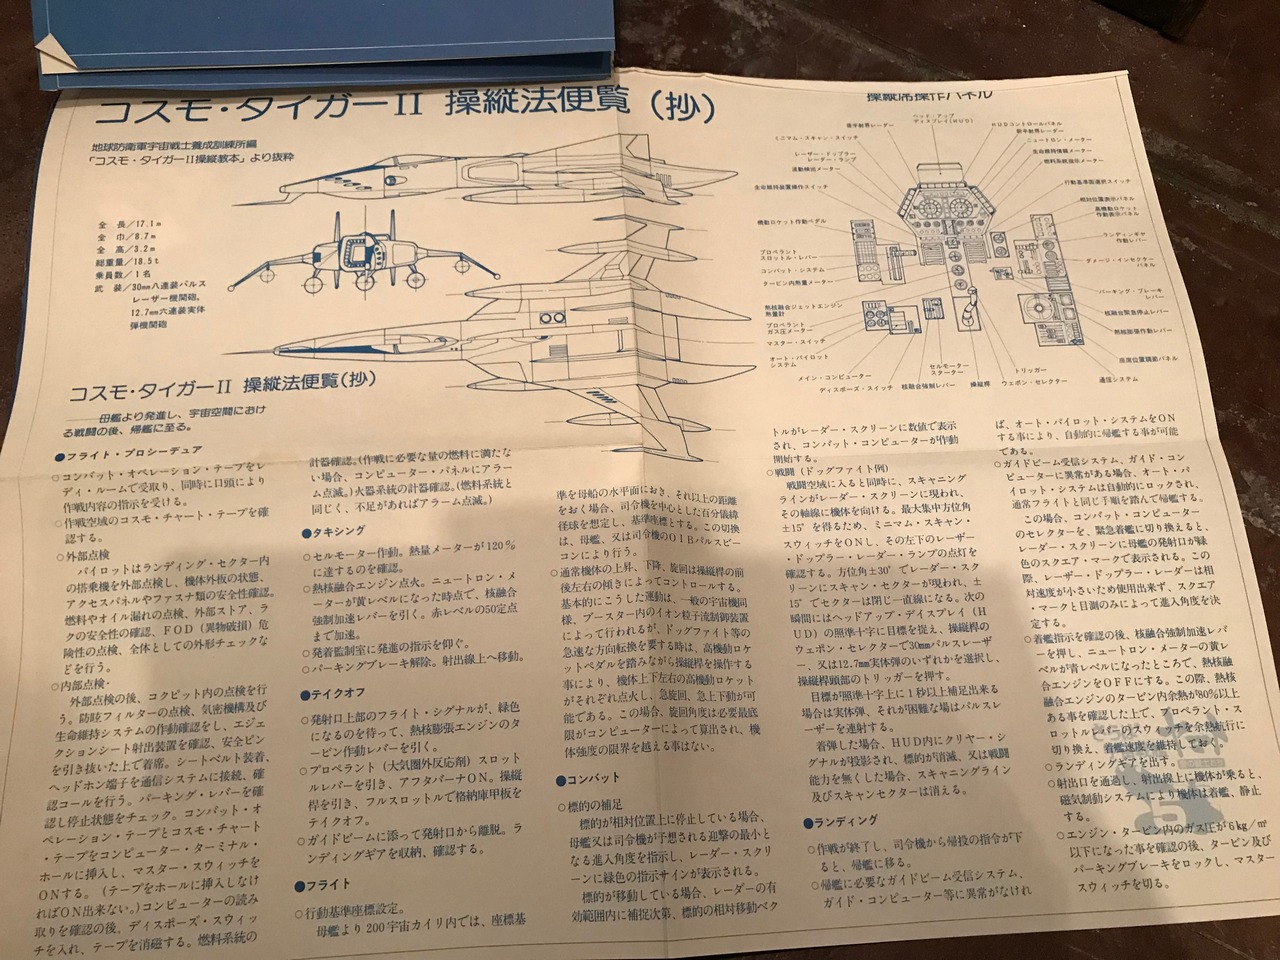 コスモ・タイガーII 操縦法便覧(抄)
地球防衛軍宇宙戦士養成訓練所編
「コスモ・タイガーII操縦教本」より抜粋
全 長／17.1m
全 巾／8.7m
全 高／3.2m
総重量／18.5t
乗員数／1名
武 装／30mm八連装パルス
レーザー機関砲。
12.7mm六連装実体
弾機関砲
操縦席操作パネル
ヘッド・アップ
ディスプレイ(HUD)
後半射界レーダー
ミニマム・スキャン・スイッチ
レーザー・ドップラー
レーダー・ランプ
波動検出メーター
生命維持装置操作スイッチ
機動ロケット作動ペダル
プロペラント
スロットル・レバー
コンバット・システム
タービン内熱量メーター
熱核融合ジェットエンジン
熱量計
プロペラント
ガス圧メーター
マスター・スイッチ
オート・パイロット
システム
メイン・コンピューター
ディスポーズ・スイッチ
核融合強制レバー
セルモーター
スターター
操縦桿
トリガー
ウェポン・セレクター
通信システム
座席位置調節パネル
熱核膨張作動レバー
核融合緊急停止レバー
パーキング・ブレーキ
レバー
ダメージ・インセクター
パネル
ランディングギヤ
作動レバー
高機動ロケット
作動表示パネル
相対位置表示パネル
行動基準面選択スイッチ
燃料系統指示メーター
生命維持情報メーター
ニュートロン・メーター
前半射界レーダー
HUDコントロールパネル
コスモ・タイガーII 操縦法便覧(抄)
——母艦より発進し、宇宙空間におけ
る戦闘の後、帰艦に至る。
●フライト・プロシーデュア
○コンバット・オペレーション・テープをレ
ディ・ルームで受取り、同時に口頭により
作戦内容の指示を受ける。
○作戦空域のコスモ・チャート・テープを確
認する。
○外部点検
パイロットはランディング・セクター内
の搭乗機を外部点検し、機体外板の状態、
アクセスパネルやファスナ類の安全性確認。
燃料やオイル漏れの点検、外部ストア、ラ
ックの安全性の確認、FOD(異物破損)危
険性の点検、全体としての外形チェックな
どを行う。
○内部点検・
外部点検の後、コクピット内の点検を行
う。防眩フィルターの点検、気密機構及び
生命維持システムの作動確認をし、エジェ
クションシート射出装置を確認、安全ピン
を引き抜いた上で着席。シートベルト装着、
ヘッドホン端子を通信システムに接続、確
認コールを行う。パーキング・レバーを確
認し停止状態をチェック。コンバット・オ
ペレーション・テープとコスモ・チャート
・テープをコンピューター・ターミナル・
ホールに挿入し、マスター・スウィッチを
ONする。(テープをホールに挿入しなけ
ればON出来ない。)コンピューターの読み
取りを確認の後、ディスポーズ・スウィッ
チを入れ、テープを消磁する。燃料系統の
計器確認。(作戦に必要な量の燃料に満たな
い場合、コンピューター・パネルにアラー
ム点滅。)火器系統の計器確認。(燃料系統と
同じく、不足があればアラーム点滅。)
●タキシング
○セルモーター作動。熱量メーターが120%
に達するのを確認。
○熱核融合エンジン点火。ニュートロン・メ
ーターが黄レベルになった時点で、核融合
強制加速レバーを引く。赤レベルの50定点
まで加速。
○発着監制室に発進の指示を仰ぐ。
○パーキングブレーキ解除。射出線上へ移動。
●テイクオフ
○発射口上部のフライト・シグナルが、緑色
になるのを待って、熱核膨張エンジンのタ
ービン作動レバーを引く。
○プロペラント(大気圏外反応剤)スロット
ルレバーを引き、アフタバーナON。操縦
桿を引き、フルスロットルで格納庫甲板を
テイクオフ。
○ガイドビームに添って発射口から離脱。ラ
ンディングギアを収納、確認する。
●フライト
○行動基準座標設定。
母艦より200宇宙カイリ内では、座標基
準を母船の水平面におき、それ以上の距離
をおく場合、司令機を中心とした百分儀緯
径球を想定し、基準座標とする。この切換
は、母艦、又は司令機のOIBパルスビー
コンにより行う。
○通常機体の上昇、下降、旋回は操縦桿の前
後左右の傾きによってコントロールする。
基本的にこうした運動は、一般の宇宙機同
様、ブースター内のイオン粒子流制御装置
によって行われるが、ドッグファイト等の
急速な方向転換を要する時は、高機動ロケ
ットペダルを踏みながら操縦桿を操作する
事により、機体上下左右の高機動ロケット
がそれぞれ点火し、急旋回、急上下動が可
能である。この場合、旋回角度は必要最底
限がコンピューターによって算出され、機
体強度の限界を越える事はない。
●コンバット
○標的の補足
標的が相対位置上に停止している場合、
母艦又は司令機が予想される迎撃の最小と
なる進入角度を指示し、レーダー・スクリ
ーンに緑色の指示サインが表示される。
標的が移動している場合、レーダーの有
効範囲内に補捉次第、標的の相対移動ベク
トルがレーダー・スクリーンに数値で表示
され、コンバット・コンピューターが作動
開始する。
○戦闘(ドッグファイト例)
戦闘空域に入ると同時に、スキャニング
ラインがレーダー・スクリーンに現われ、
その軸線に機体を向ける。最大集中方位角
±15°を得るため、ミニマム・スキャン・
スウィッチをONし、その左下のレーザ
ー・ドップラー・レーダー・ランプの点灯を
確認する。方位角±30°でレーダー・スク
リーンにスキャン・セクターが現われ、±
15°でセクターは閉じ一直線になる。次の
瞬間にはヘッドアップ・デイスプレイ(H
UD)の照準十字に目標を捉え、操縦桿の
ウェポン・セレクターで30mmパルスレーザ
ー、又は12.7mm実体弾のいずれかを選択し、
操縦桿頭部のトリガーを押す。
目標が照準十字上に1秒以上補足出来る
場合は実体弾、それが困難な場はパルスレ
ーザーを連射する。
着弾した場合、HUD内にクリヤー・シ
グナルが投影され、標的が消滅、又は戦闘
能力を無くした場合、スキャニングライン
及びスキャンセクターは消える。
●ランディング
○作戦が終了し、司令機から帰投の指令が下
ると、帰艦に移る。
○帰艦に必要なガイドビーム受信システム、
ガイド・コンピューター等に異常がなけれ
ば、オート・パイロット・システムをON
する事により、自動的に帰艦する事が可能
である。
○ガイドビーム受信システム、ガイド・コン
ピューターに異常がある場合、オート・パ
イロット・システムは自動的にロックされ、
通常フライトと同じ手順を踏んで帰艦する。
この場合、コンバット・コンピューター
のセレクターを、緊急着艦に切り換えると、
レーダー・スクリーンに母艦の発射口が緑
色のスクエア・マークで表示される。この
際、レーザー・ドップラー・レーダーは相
対速度が小さいため使用出来ず、スクエア
・マークと目測のみによって進入角度を決
定する。
○着艦指示を確認の後、核融合強制加速レバ
ーを押し、ニュートロン・メーターの黄レ
ベルが青レベルになったところで、熱核融
合エンジンをOFFにする。この際、熱核
融合エンジンのタービン内余熱が80%以上
ある事を確認した上で、プロペラント・ス
ロットルレバーのスウィチを余熱航行に
切り換え、着艦速度を維持しておく。
○ランディングギアを出す。
○射出口を通過し、射出線上に機体が乗ると、
磁気制動システムにより機体は着艦、静止
する。
○エンジン・タービン内のガス圧が6kg/㎡
以下になった事を確認の後、タービン及び
パーキングブレーキをロックし、マスター
スウィッチを切る。